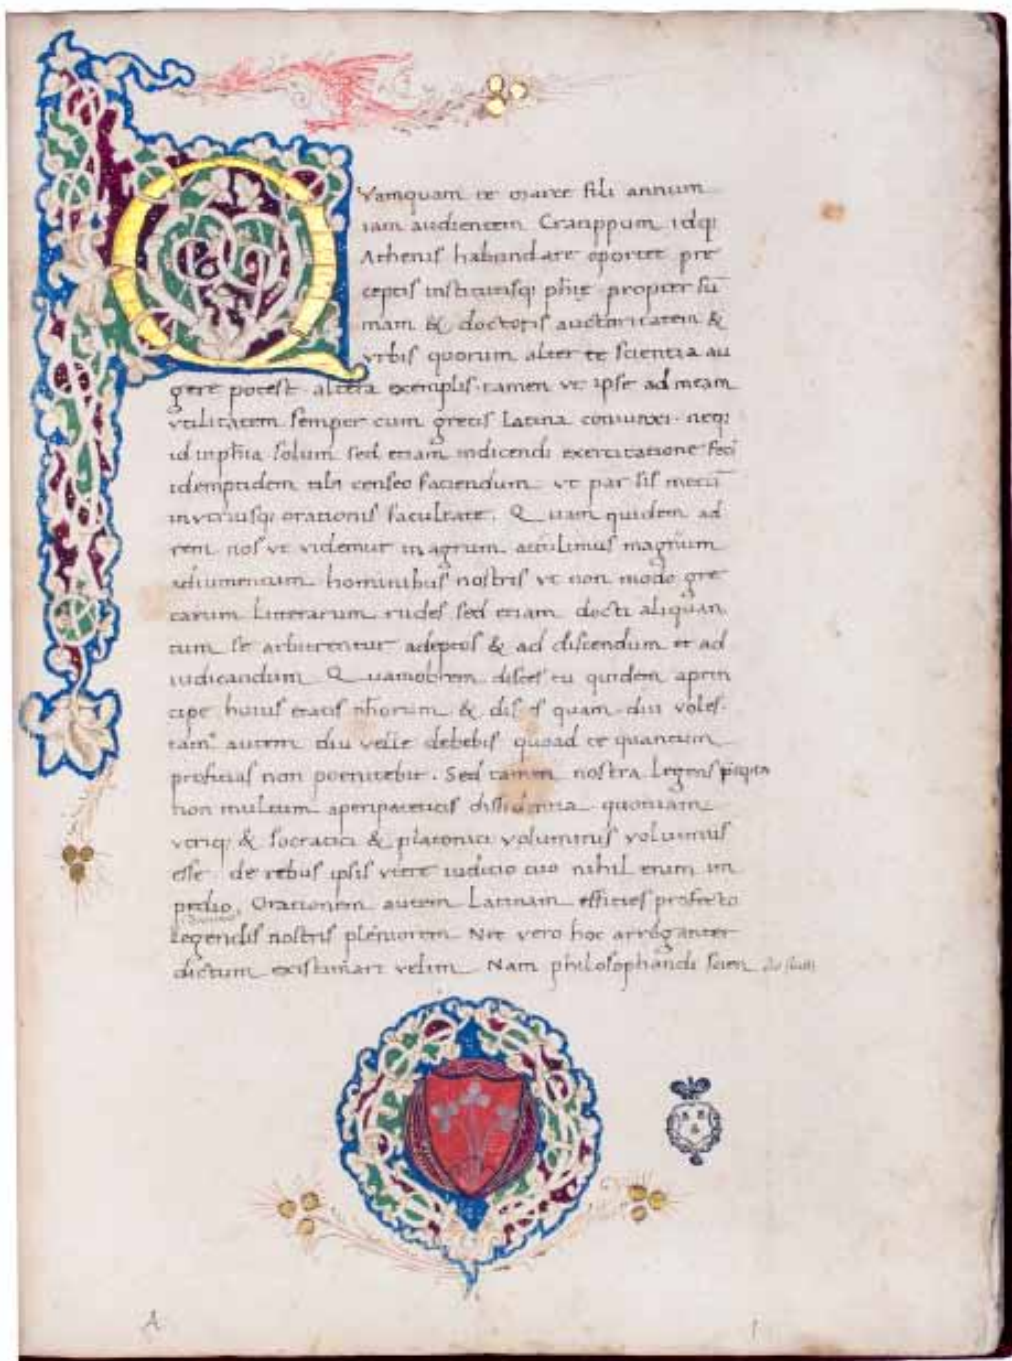 Quamquam te Marce fili annum
iam audientem Cratippum idq;
Athenis habundare oportet pre
ceptis institutisq; ph̄ię propter sū
mam & doctoris auctoritatem &
vrbis quorum alter te scientia au
gere potest altera exemplis tamen vt ipse ad meam
vtilitatem semper cum grecis Latina coniunxi neq;
id in ph̄ia solum sed etiam indicendi exercitatione feci
idemptidem tibi censeo faciendum vt par sis mecū
invtriusq; orationis facultate. Quam quidem ad
rem nos vt videmur magnum attulimus
adiumentum hominibus nostris vt non modo gre
carum Litterarum rudes sed etiam docti aliquan
tum se arbitrentur adeptos & ad discendum et ad
iudicandum Quamobrem disces tu quidem aprin
cipe huius etatis ph̄orum & disces quam diu voles.
tam autem diu velle debebis quoad te quantum
proficias non poenitebit. Sed tamen nostra Legens
non multum aperipateticis dissidentia quoniam
vtriq; & socratici & platonici volumus
esse de rebus ipsis vtere iudicio tuo nihil enim im
pedio. Orationem autem Latinam efficies profecto
Legendis nostris pleniorem Nec vero hoc arroganter
dictum existimari velim Nam philosophandi scien
A
1